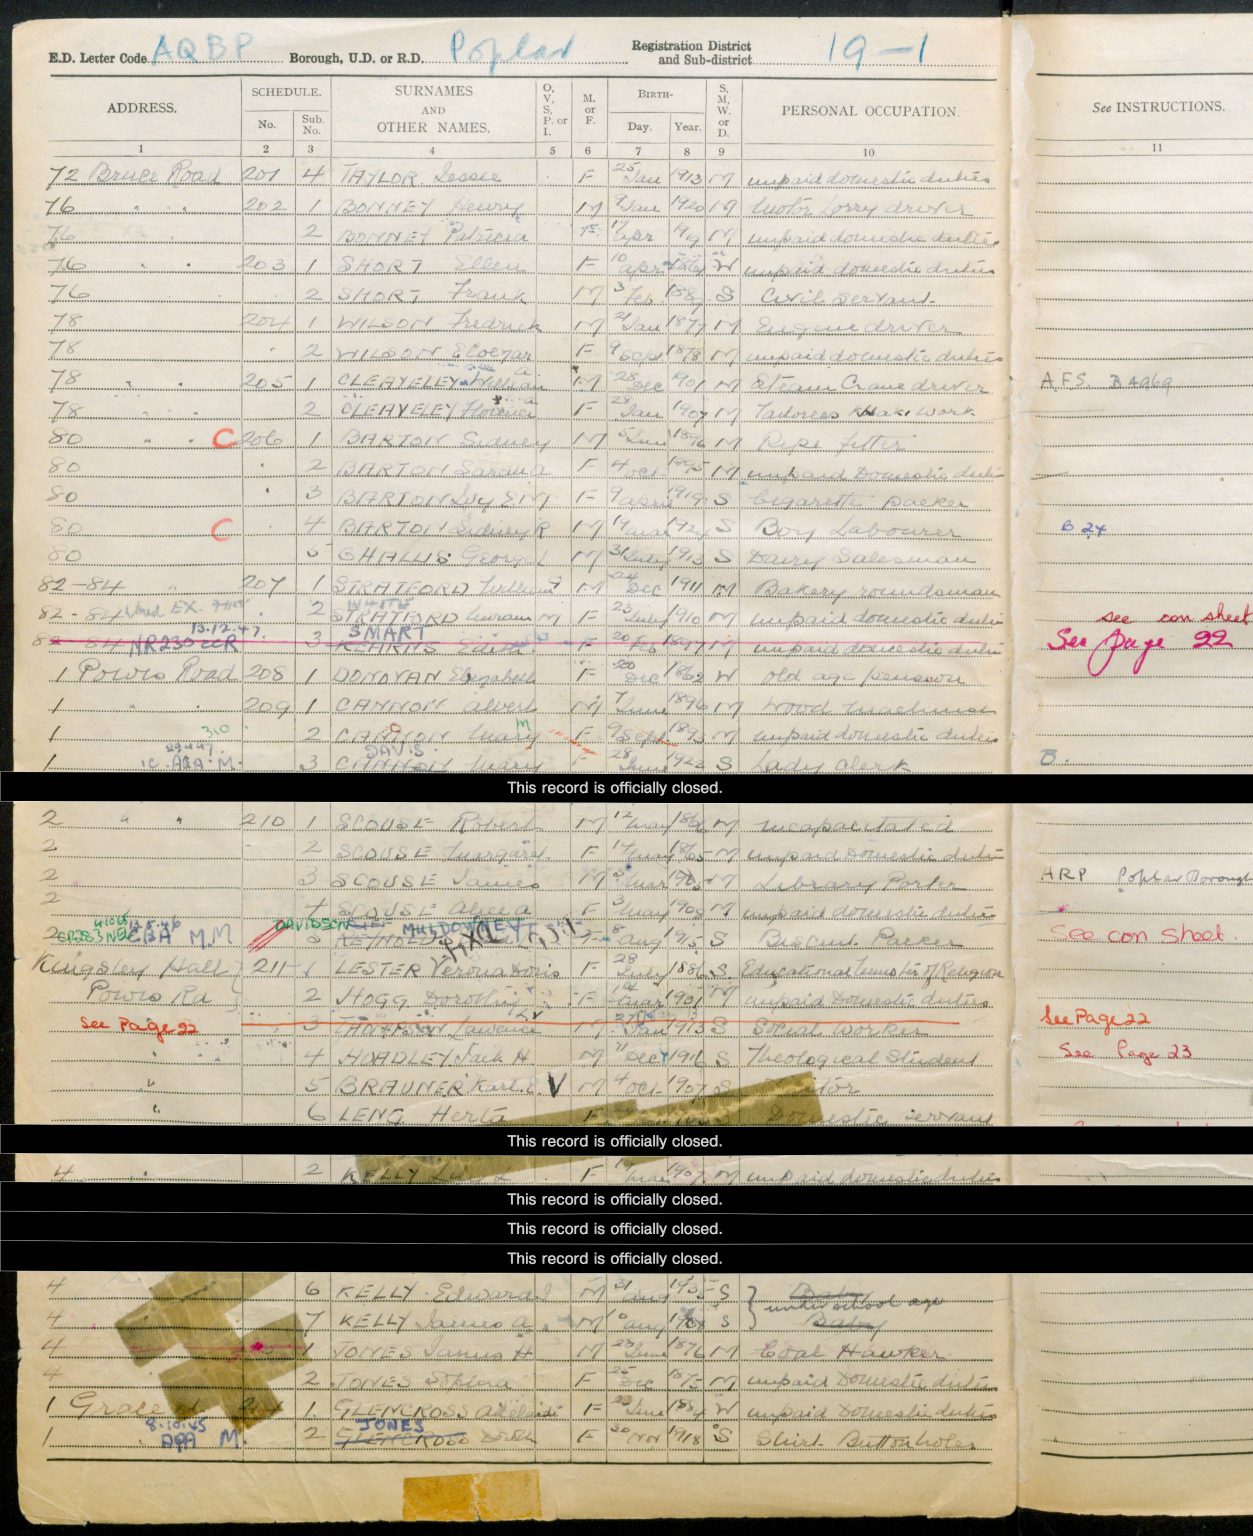 E.D. Letter Code AQBP Borough, U.D. or R.D. Poplar Registration District and Sub-district 19-1
ADDRESS. SCHEDULE. No. Sub. No. SURNAMES AND OTHER NAMES. O, V, S, P, or I. M. or F. BIRTH- Day. Year. S, M, W. or D. PERSONAL OCCUPATION. See INSTRUCTIONS.
1 2 3 4 5 6 7 8 9 10 11
72 Bruce Road 201 4 TAYLOR Jessie F 25 Jan 1913 M unpaid domestic duties
76 " " 202 1 BONNEY Henry M 9 Jan 1920 M Motor Lorry driver
76 2 BONNEY Patricia F 17 Apr M unpaid domestic duties
76 " " 203 1 SHORT Ellen F 10 Apr W unpaid domestic duties
76 2 SHORT Frank M 3 Feb 1889 S Civil Servant
78 204 1 WILSON Fredrick M 21 Jan 1877 M Engine driver
78 2 WILSON F 9 Sept 1878 M unpaid domestic duties
78 " " 205 1 CLEAVELEY William A M 28 Dec 1901 M Steam Crane driver A.F.S.
78 2 CLEAVELEY Florence A F 28 Jan 1907 M Tailoress Khaki work
80 " " C 206 1 BARTON Sidney M 5 1896 M Pipe fitter
80 2 BARTON Sarah A F 4 Oct 1895 M unpaid Domestic duties
80 3 BARTON Ivy E M F 9 April 1919 S Cigarette packer
80 C 4 BARTON Sidney R M 1924 S Boy Labourer B 24
80 5 SHALLIS George M 31 July 1913 S Dairy Salesman
82-84 " 207 1 STRATFORD William F M 24 Dec 1911 M Bakery roundsman
82-84 2 WHITE STRATFORD M F 23 July 1910 M unpaid domestic duties see con sheet
13.12.47. SMART
82-84 NR230 CCR 3 KEARNS Edith F 20 Feb 1897 M unpaid domestic duties See page 22
1 Powis Road 208 1 DONOVAN Elizabeth F 20 Dec 1862 W old age pension
1 " " 209 1 CANNON Albert M 7 June 1896 M Wood Machinist
1 2 CANNON Mary M F 9 Sept 1893 M unpaid domestic duties
DAVIS
1 3 CANNON Mary F 28 June 1920 S Lady Clerk B.
This record is officially closed.
2 " " 210 1 SCOUSE Robert M 12 May M incapacitated
2 2 SCOUSE Margaret F 17 May 1865 M unpaid Domestic duties
2 3 SCOUSE James M Mar M Library Porter ARP Poplar Borough
2 4 SCOUSE Alice A F 3 May 1908 M unpaid domestic duties
DAVIDSON MULDOWNEY
2 M.M 5 REYNOLDS F 8 Aug 1915 S Biscuit Packer See con sheet.
Kingsley Hall 211 1 LESTER Verona Doris F 28 July 1886 S Educational Minister of Religion
Powis Rd 2 HOGG Dorothy F Mar 1901 M unpaid Domestic duties
See Page 22 3 Lawrence M Jan 1913 S Social Worker See Page 22
4 HOADLEY Jack H. M 11 Dec 1916 S Theological Student See Page 23
" 5 BRAUNER Karl. E. V M 4 Oct 1907 S
" 6 LENG Herta F Domestic Servant
This record is officially closed.
4 " 2 KELLY F Mar 1907 M unpaid domestic duties
This record is officially closed.
This record is officially closed.
This record is officially closed.
4 6 KELLY Edward M 21 Aug 1935 S Baby under school age
4 7 KELLY James A. M Aug S Baby
4 1 JONES James H M 23 June 1876 M Coal Hawker
4 2 JONES Sophia F 25 Dec 1875 M unpaid Domestic duties
1 Grace 1 GLENCROSS Adelaide F 23 June W unpaid Domestic duties
8.10.45 JONES
1 M. 2 GLENCROSS Doris F 20 Nov 1918 S Shirt Buttonholer